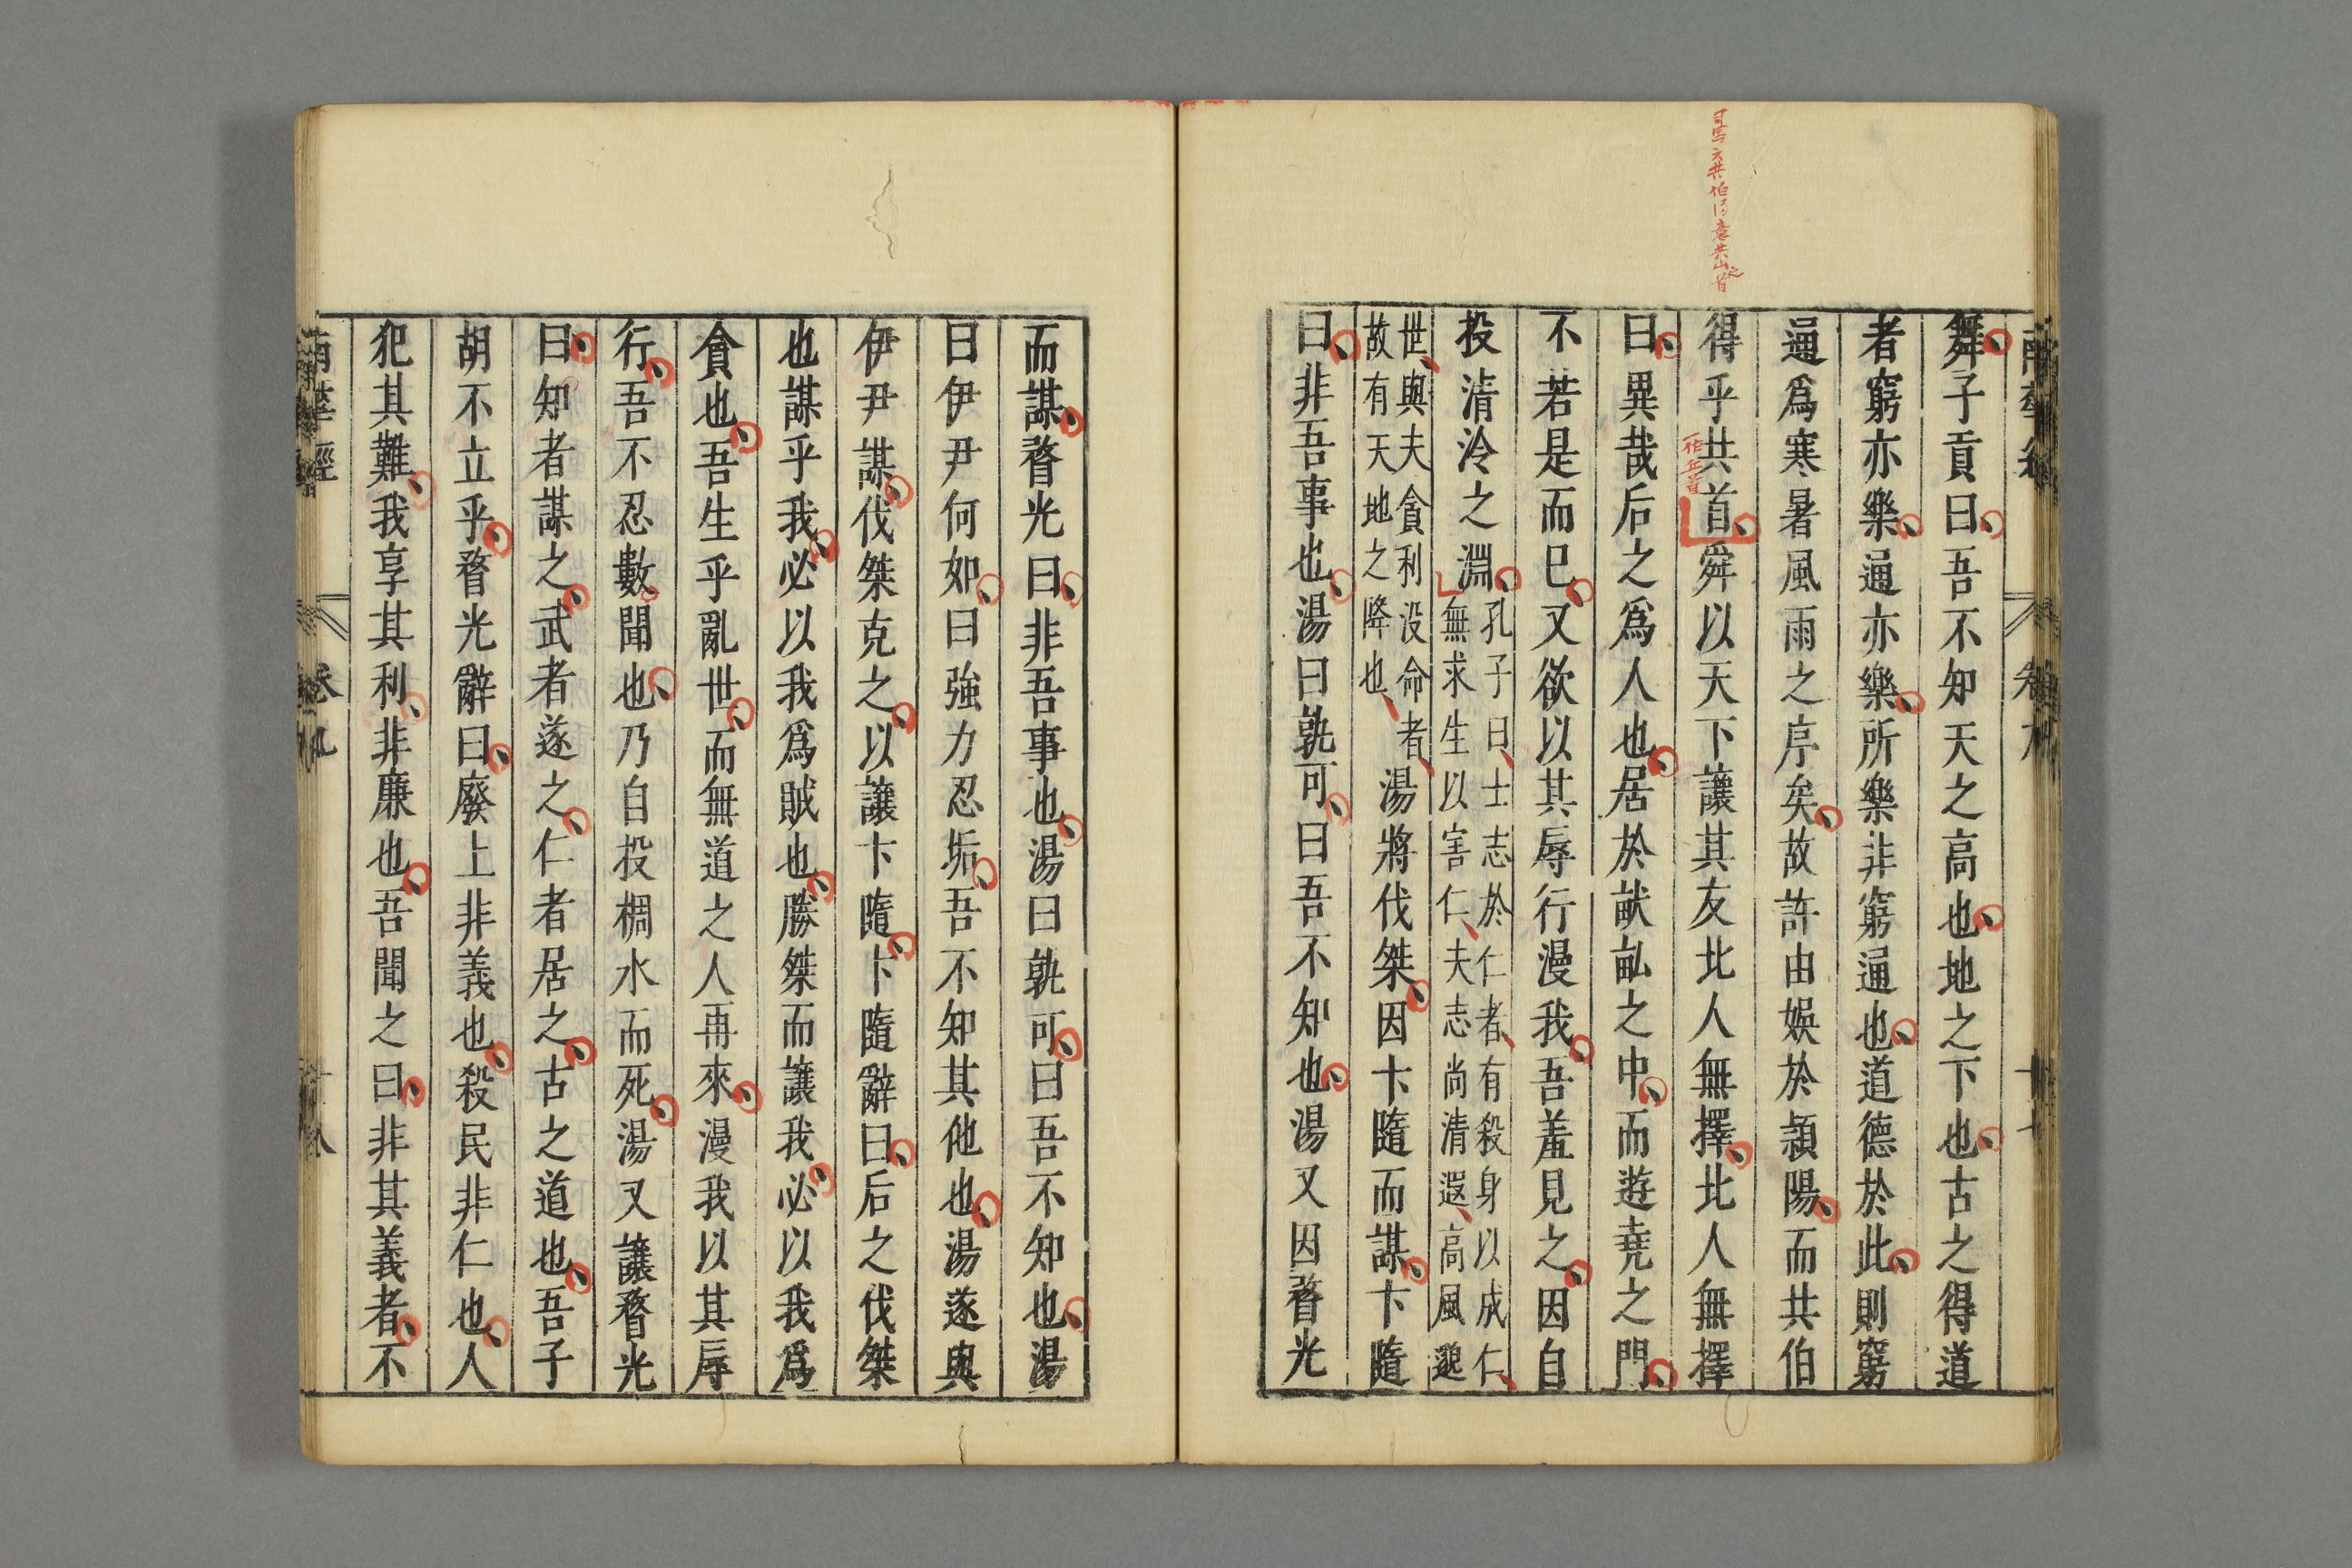 舞子貢曰吾不知天之高也地之下也古之得道
者窮亦樂通亦樂所樂非窮通也道德於此則窮
通爲寒暑風雨之序矣故許由娛於潁陽而共伯
司馬云共伯得意共山之首
得乎共首舜以天下讓其友北人無擇北人無擇
一作丘首
曰異哉后之爲人也居於畎畝之中而遊堯之門
不若是而已又欲以其辱行漫我吾羞見之因自
投清泠之淵
孔子曰士志於仁者有殺身以成仁
無求生以害仁夫志尚清遐高風邈
世與夫貪利没命者
故有天地之降也
湯將伐桀因卞隨而謀卞隨
曰非吾事也湯曰孰可曰吾不知也湯又因瞀光
而謀瞀光曰非吾事也湯曰孰可曰吾不知也湯
曰伊尹何如曰強力忍垢吾不知其他也湯遂與
伊尹謀伐桀克之以讓卞隨卞隨辭曰后之伐桀
也謀乎我必以我爲賊也勝桀而讓我必以我爲
貪也吾生乎亂世而無道之人再來漫我以其辱
行吾不忍數聞也乃自投椆水而死湯又讓瞀光
曰知者謀之武者遂之仁者居之古之道也吾子
胡不立乎瞀光辭曰廢上非義也殺民非仁也人
犯其難我享其利非廉也吾聞之曰非其義者不
南華經 卷九 十八